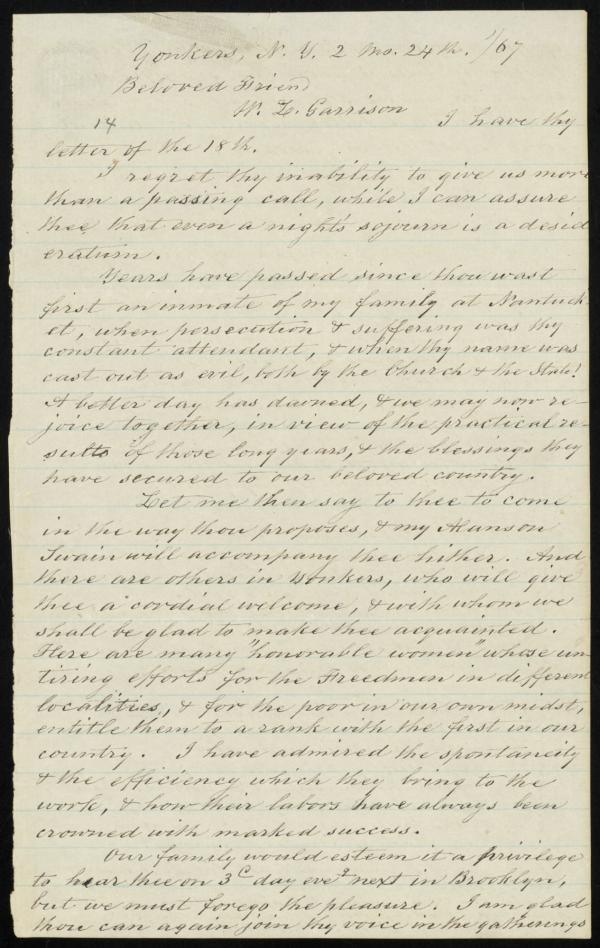 Yonkers, N. Y. 2 mo. 24th. 1/67
Beloved Friend
W. L. Garrison
14 I have thy
letter of the 18th.
I regret thy inability to give us more
than a passing call, while I can assure
thee that even a night's sojourn is a desid
eratum.
Years have passed since thou wast
first an inmate of my family at Nantuck-
et, when persecution & suffering was thy
constant attendant, & when thy name was
cast out as evil, both by the Church & the State!
A better day has dawned, & we may now re-
joice together, in view of the practical re-
sults of those long years, & the blessings they
have secured to our beloved country.
Let me then say to thee to come
in the way thou proposes, & my Hanson
Swain will accompany thee hither. And
there are others in Yonkers, who will give
thee a cordial welcome, & with whom we
shall be glad to make thee acquainted.
Here are many "honorable women" whose un-
tiring efforts for the Freedmen in different
localities, & for the poor in our own midst,
entitle them to a rank with the first in our
country. I have admired the spontaneity
& the efficiency which they bring to the
work, & how their labors have always been
crowned with marked success.
Our family would esteem it a privilege
to hear thee on 3d day eve'g next in Brooklyn,
but we must forego the pleasure. I am glad
thou can again join thy voice in the gatherings